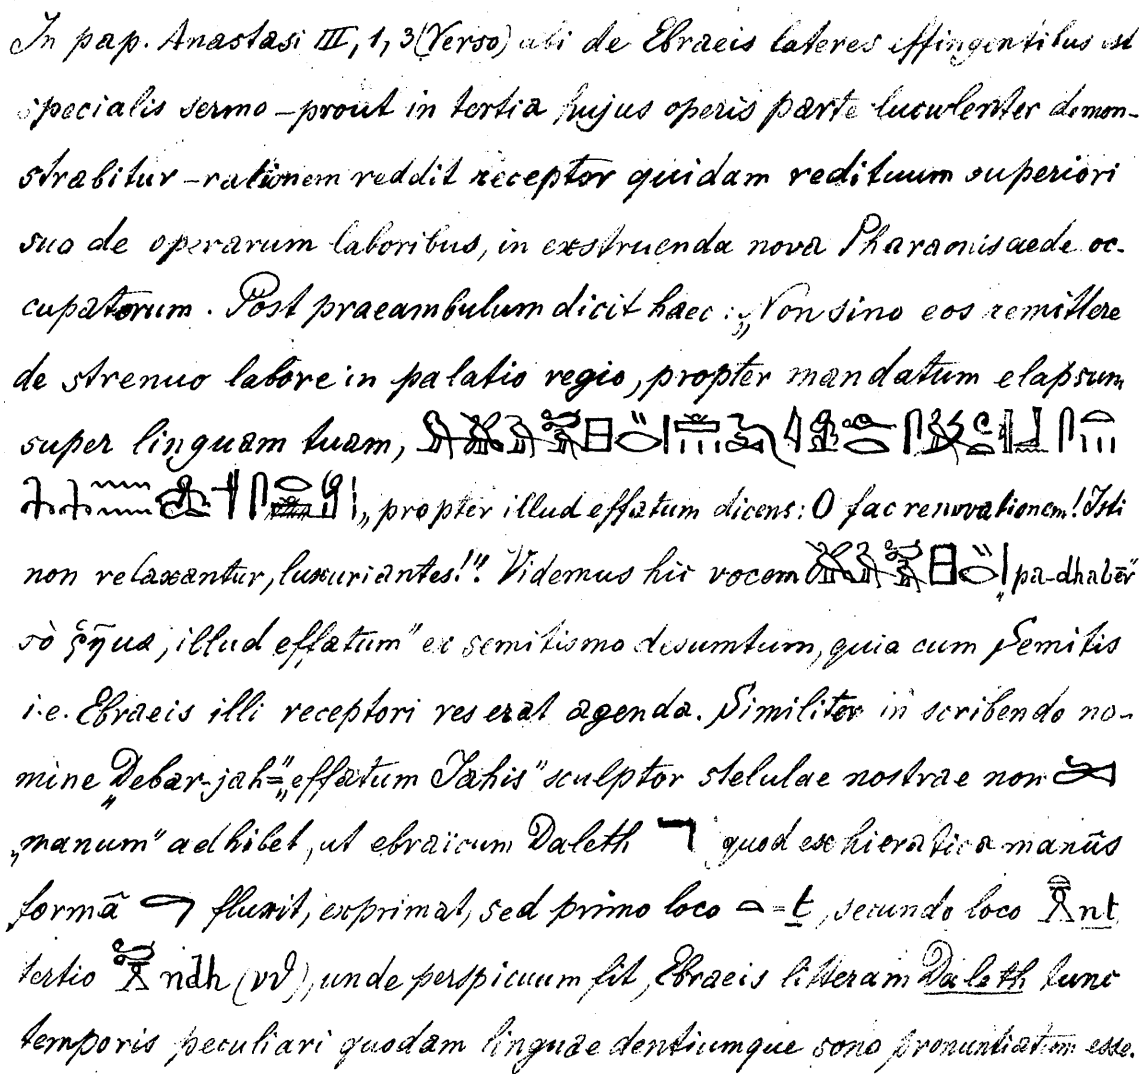 In pap. Anastasi III, 1, 3 (Verso) ubi de Ebraeis lateres effingentibus est
specialis sermo – prout in tertia hujus operis parte luculenter demon-
strabitur – rationem reddit receptor quidam redituum superiori
suo de operarum laboribus, in exstruenda nova Pharaonis aede oc-
cupatorum. Post praeambulum dicit haec: „Non sino eos remittere
de strenuo labore in palatio regio, propter mandatum elapsum
super linguam tuam,
„propter illud effatum dicens: O fac renovationem! Isti
non relaxantur, luxuriantes!" Videmus hic vocem „pa-dhabēr"
τὸ ῥῆμα, „illud effatum" ex semitismo desumtum, quia cum Semitis
i.e. Ebraeis illi receptori res erat agenda. Similiter in scribendo no-
mine „Debar-jah" = „effatum Jahis" sculptor stelulae nostrae non
„manum" adhibet, ut ebraïcum Daleth ㄱ quod ex hieratica manūs
formā fluxit, exprimat, sed primo loco = t, secundo loco nt
tertio ndh (νϑ), unde perspicuum fit, Ebraeis litteram Daleth tunc
temporis peculiari quodam linguae dentiumque sono pronuntiatum esse.